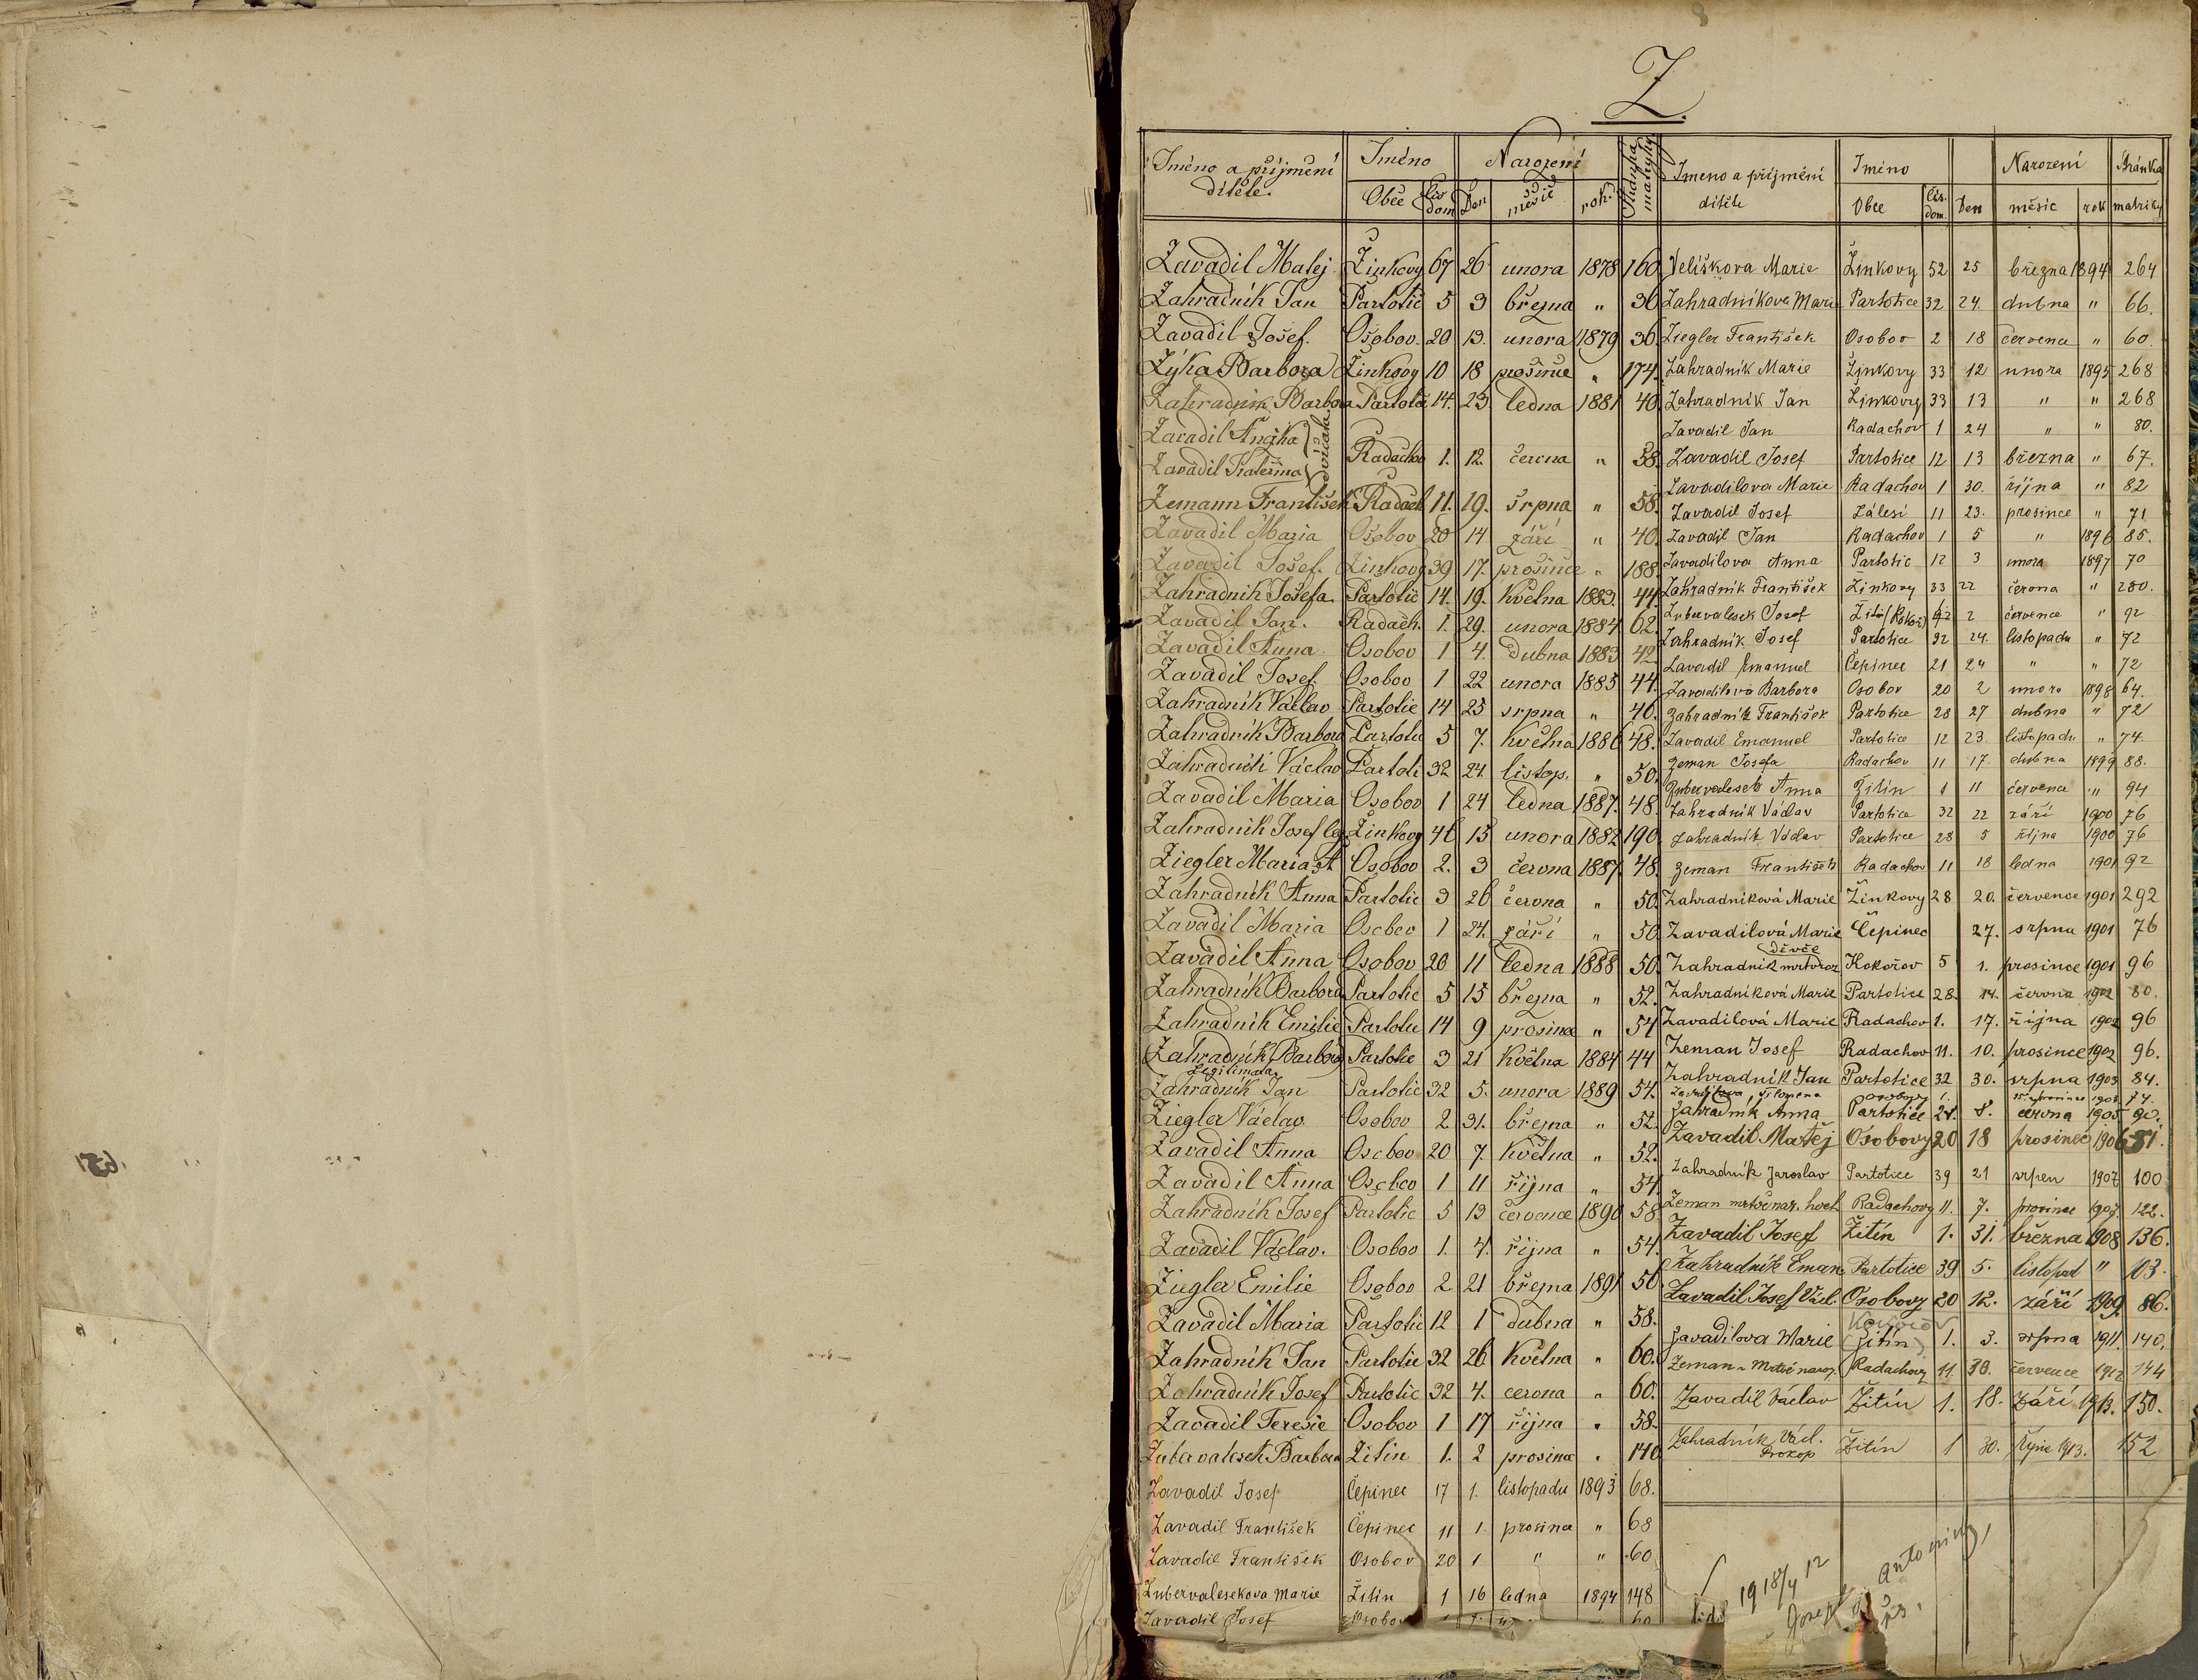 Z.
Jméno a příjmení dítěte. Jméno Narození Stránka matriky
Obce Čís dom Den měsíc rok.
Zavadil Matej Žinkovy 67 26 unora 1878 160
Zahradník Jan Partotic 5 3 března " 36
Zavadil Josef. Osobov. 20 13. unora 1879 36.
Zýka Barbora Žinkovy 10 18 prosince " 174.
Zahradník Barbora Partotic 14. 23. ledna 1881 40.
Zavadil Anežka
Zavadil Kateřina dvojčata Radachov 1. 12. června " 58.
Zemann František Radach 11. 19. srpna " 58.
Zavadil Maria Osobov 20 14 září " 40.
Zavadil Josef. Žinkovy 39 17. prosince " 188.
Zahradnik Josefa Partotic 14. 19. května 1883. 44.
Zavadil Jan. Radach. 1. 29. unora 1884 62.
Zavadil Anna Osobov 1 4. dubna 1883 42.
Zavadil Josef Osobov 1 22 unora 1885 44.
Zahradník Václav Partotic 14 25 srpna " 46.
Zahradník Barbora Partotic 5 7. května 1886 48.
Zahradník Václav Partoti 32 24. listop. " 50.
Zavadil Maria Osobov 1 24 ledna 1887. 48.
Zahradník Josef leg. Žinkovy 46 15 unora 1882 190.
Ziegler Maria A Osobov 2. 3 června 1887. 48.
Zahradník Anna Partotic 3 26 června " 50.
Zavadil Maria Osobov 1 24. září " 50.
Zavadil Anna Osobov 20 11 ledna 1888 50.
Zahradník Barbora Partotic 5 15 března " 52.
Zahradník Emilie Partotic 14 9 prosince " 54
Zahradník Barbora Partotic 3 21 května 1884 44
Legitimata
Zahradník Jan Partotic 32 5. unora 1889 54.
Ziegler Václav. Osobov 2 31. března " 52.
Zavadil Anna Osobov 20 7. května " 52.
Zavadil Anna Osobov 1 11 října " 54.
Zahradník Josef Partotic 5 13 července 1890 58
Zavadil Václav. Osobov 1. 4. října " 54.
Ziegler Emilie Osobov 2 21 března 1891 56
Zavadil Maria Partotic 12 1 dubna " 58.
Zahradník Jan Partotic 32 26. května " 60.
Zahradník Josef Partotic 32 4. cervna " 60.
Zavadil Teresie Osobov 1 17 října " 58.
Zubervalesek Barbora Žitin 1. 2 prosince " 140
Zavadil Josef Čepinec 17 1. listopadu 1893 68.
Zavadil František Čepinec 11 1. prosince " 68
Zavadil František Osobov 20 1 " " 60
Zubervalesekova Marie Žitin 1 16 ledna 1894 148
Zavadil Josef Osobov
Jmeno a příjmení dítěte Jméno Narození Stránka matriky
Obce Čís. dom. Den měsíc rok
Veliškova Marie Žinkovy 52 25 března 1894 264
Zahradníkova Marie Partotice 32 24. dubna " 66.
Ziegler František Osobov 2 18 červena " 60.
Zahradník Marie Žinkovy 33 12 unora 1895 268
Zahradník Jan Žinkovy 33 13 " " 268
Zavadil Jan Radachov 1 24 " " 80.
Zavadil Josef Partotice 12 13 března " 67.
Zavadilova Marie Radachov 1 30. října " 82
Zavadil Josef Zálesí 11 23. prosince " 71
Zavadil Jan Radachov 1 5 " 1896 85.
Zavadilova Anna Partotic 12 3 unora 1897 70
Zahradník František Žinkovy 33 22 června " 280.
Zubervalesek Josef Žitin 2 července " 92
Zahradník Josef Partotice 32 24. listopadu " 72
Zavadil Emanuel Čepinec 21 24 " " 72
Zavadilova Barbora Osobov 20 2 unora 1898 64.
Zahradník František Partotice 28 27 dubna " 72
Zavadil Emanuel Partotice 12 23. listopadu " 74.
Zeman Josefa Radachov 11 17. dubna 1899 88.
Zubervalesek Anna Žitin 1 11 července " 94
Zahradník Václav Partotice 32 22 září 1900 76
Zahradník Václav Partotice 28 5 října 1900 76
Zeman František Radachov 11 18 ledna 1901 92
Zahradníková Marie Žinkovy 28 20. července 1901 292
Zavadilová Marie Čepinec 27. srpna 1901 76
děvče
Zahradník mrtvoroz Kokořov 5 1. prosince 1901 96
Zahradníková Marie Partotice 28. 14. června 1902 80.
Zavadilová Marie Radachov 1. 17. října 1902 96
Zeman Josef Radachov 11. 10. prosince 1902 96.
Zahradník Jan Partotice 32 30. srpna 1903 84.
Zavadilova Filomena Osobovy 1. prosince 74.
Zahradník Anna Partotice 8. června 1905 90.
Zavadil Matěj Osobovy 20 18 prosinec 1906 81.
Zahradník Jaroslav Partotice 39 21 srpen 1907 100
Zeman mrtvě nar. hoch Radachovy 11. 7. prosince 1907. 122.
Zavadil Josef Žitín 1. 31. března 1908 136.
Zahradník Eman Partotice 39 5. listopad " 103.
Zavadil Josef Václ. Osobovy 20 12. září 1909 86.
Kokořov
Zavadilova Marie (Žitín) 1. 3. srpna 1911. 140.
Zeman Mrtvě naroz. Radachovy 11. 30. července 1912 144
Zavadil Václav Žitín 1. 18. září 1913. 150.
Zahradník Václ. Prokop Žitín 1 30. Října 1913. 152
1918 12
Antonín
Josef